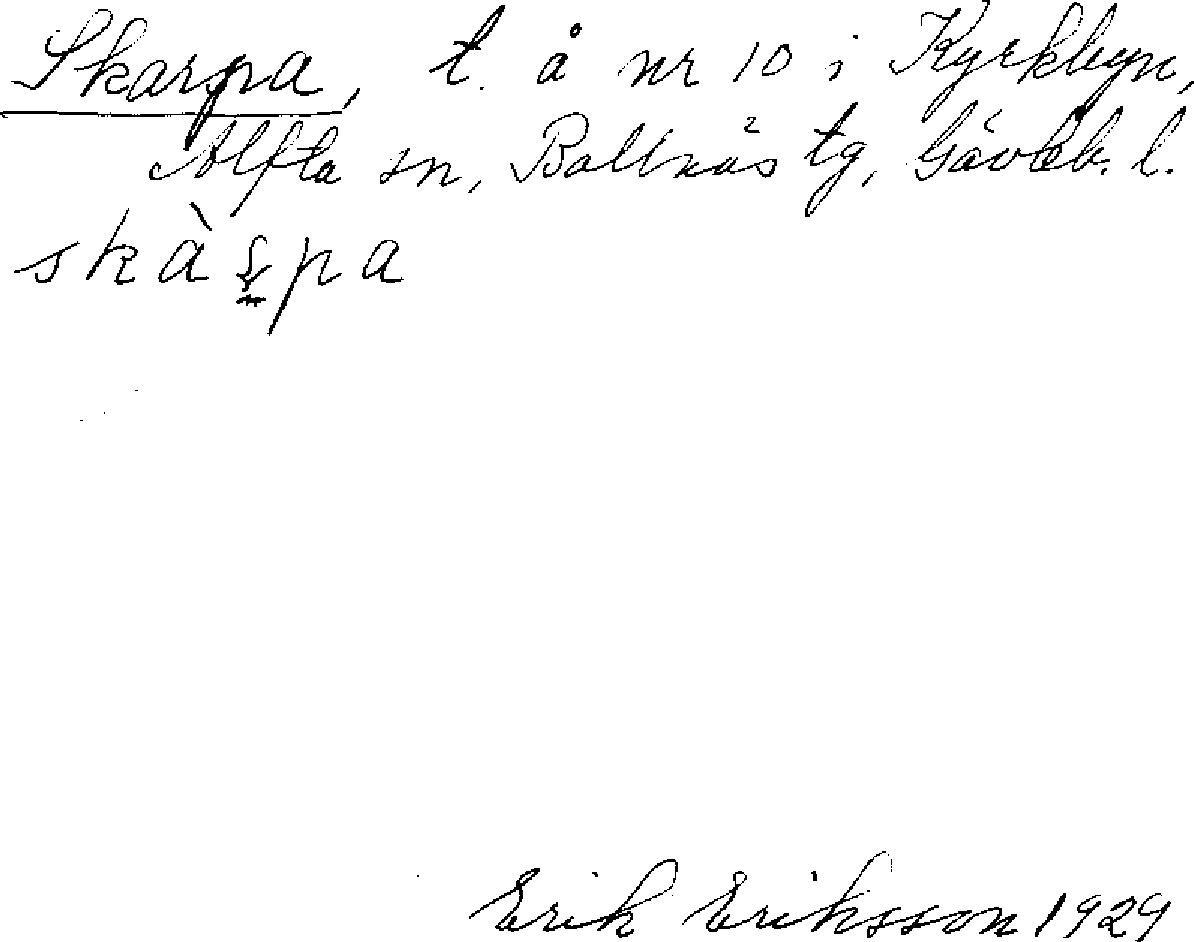 Skarpa, t. å nr 10 i Kyrkbyn,
Alfta sn, Bollnäs tg, Gävleb. l.
skàpa
Erik Eriksson 1929